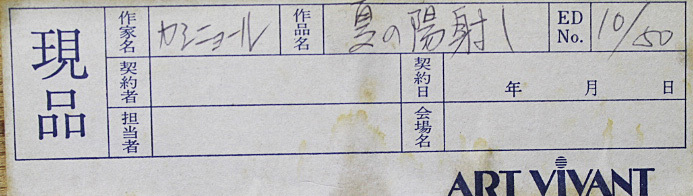 現品 作家名 カシニョール 作品名 夏の陽射し ED No. 10/50
契約者 契約日 年 月 日
担当者 会場名
ART VIVANT